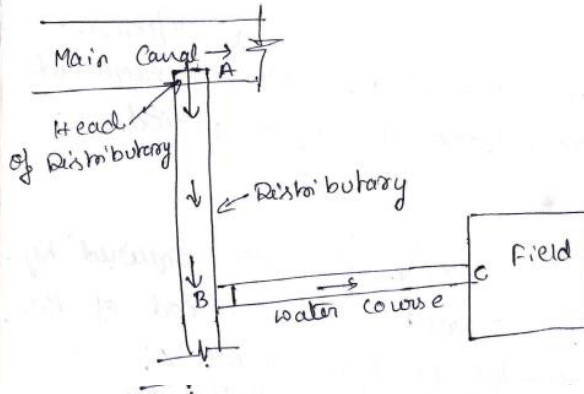 Main Canal →
A
Head
of Distributary
Distributary
B
water course
C
Field